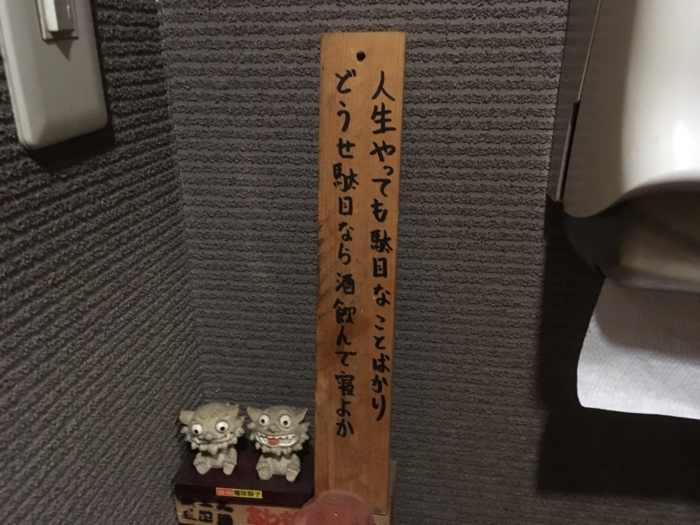 人生やっても駄目なことばかり
どうせ駄目なら酒飲んで寝よか